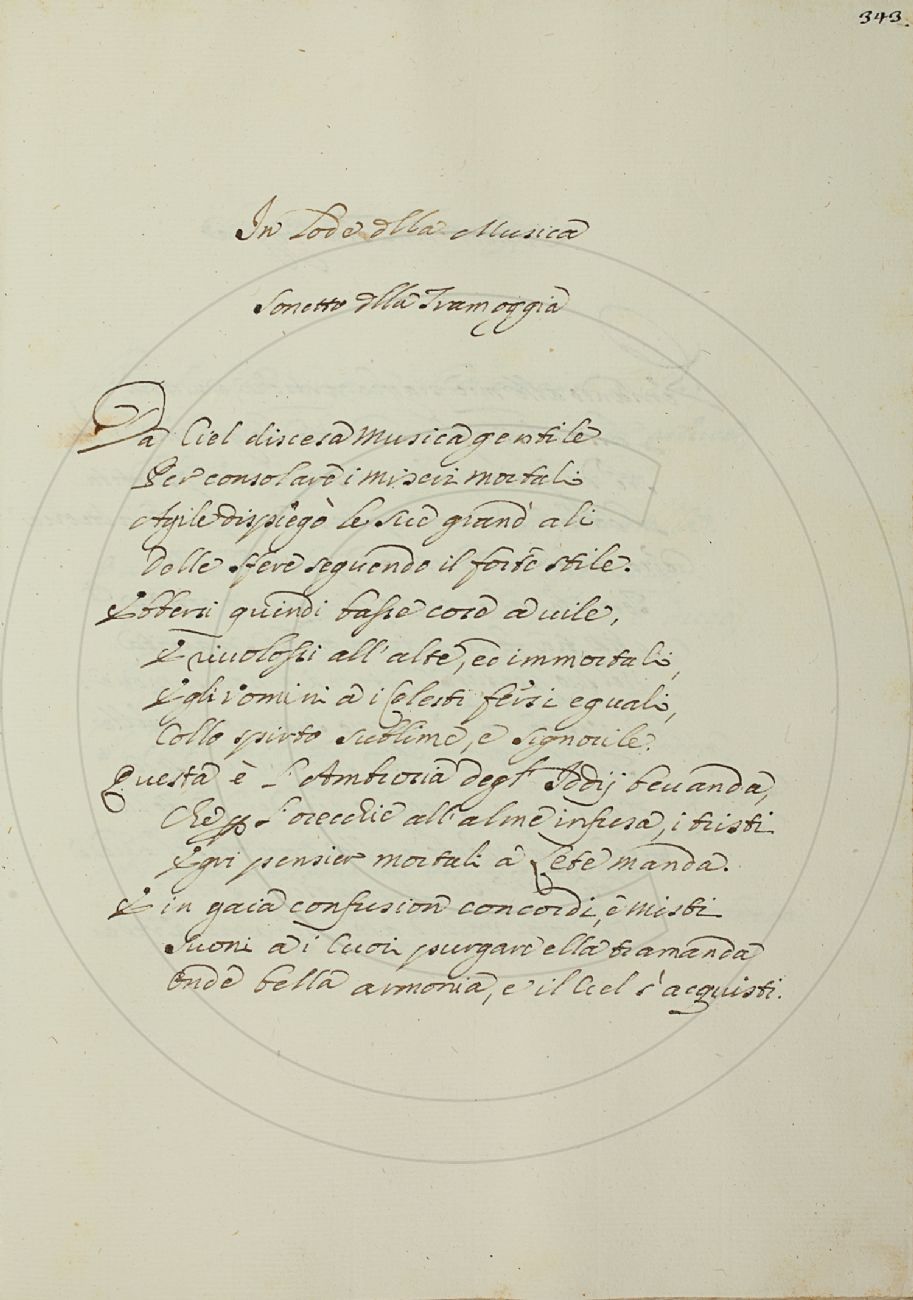 343.
In Lode dlla Musica
Sonetto dlla Tramoggia
Da Ciel discesa Musica gentile
Per consolare i miseri mortali
Agile dispiegò le sue grand' ali
Delle sfere seguendo il forte stile.
Ebbersi quindi basse cose a vile,
E rivolossi all'alte, ed immortali,
E gli uomini a i Celesti fersi eguali,
Collo spirto sublime, e signorile.
Questa è l'Ambrosia degl' Iddij bevanda,
Che p l'orecchie all'alme infusa, i tristi
Egri pensier mortali a Lete manda.
E in gaia confusion concordi, e misti
Suoni a i Cuori purgare ella tramanda
Onde bella armonia, e il Ciel s'acquisti.